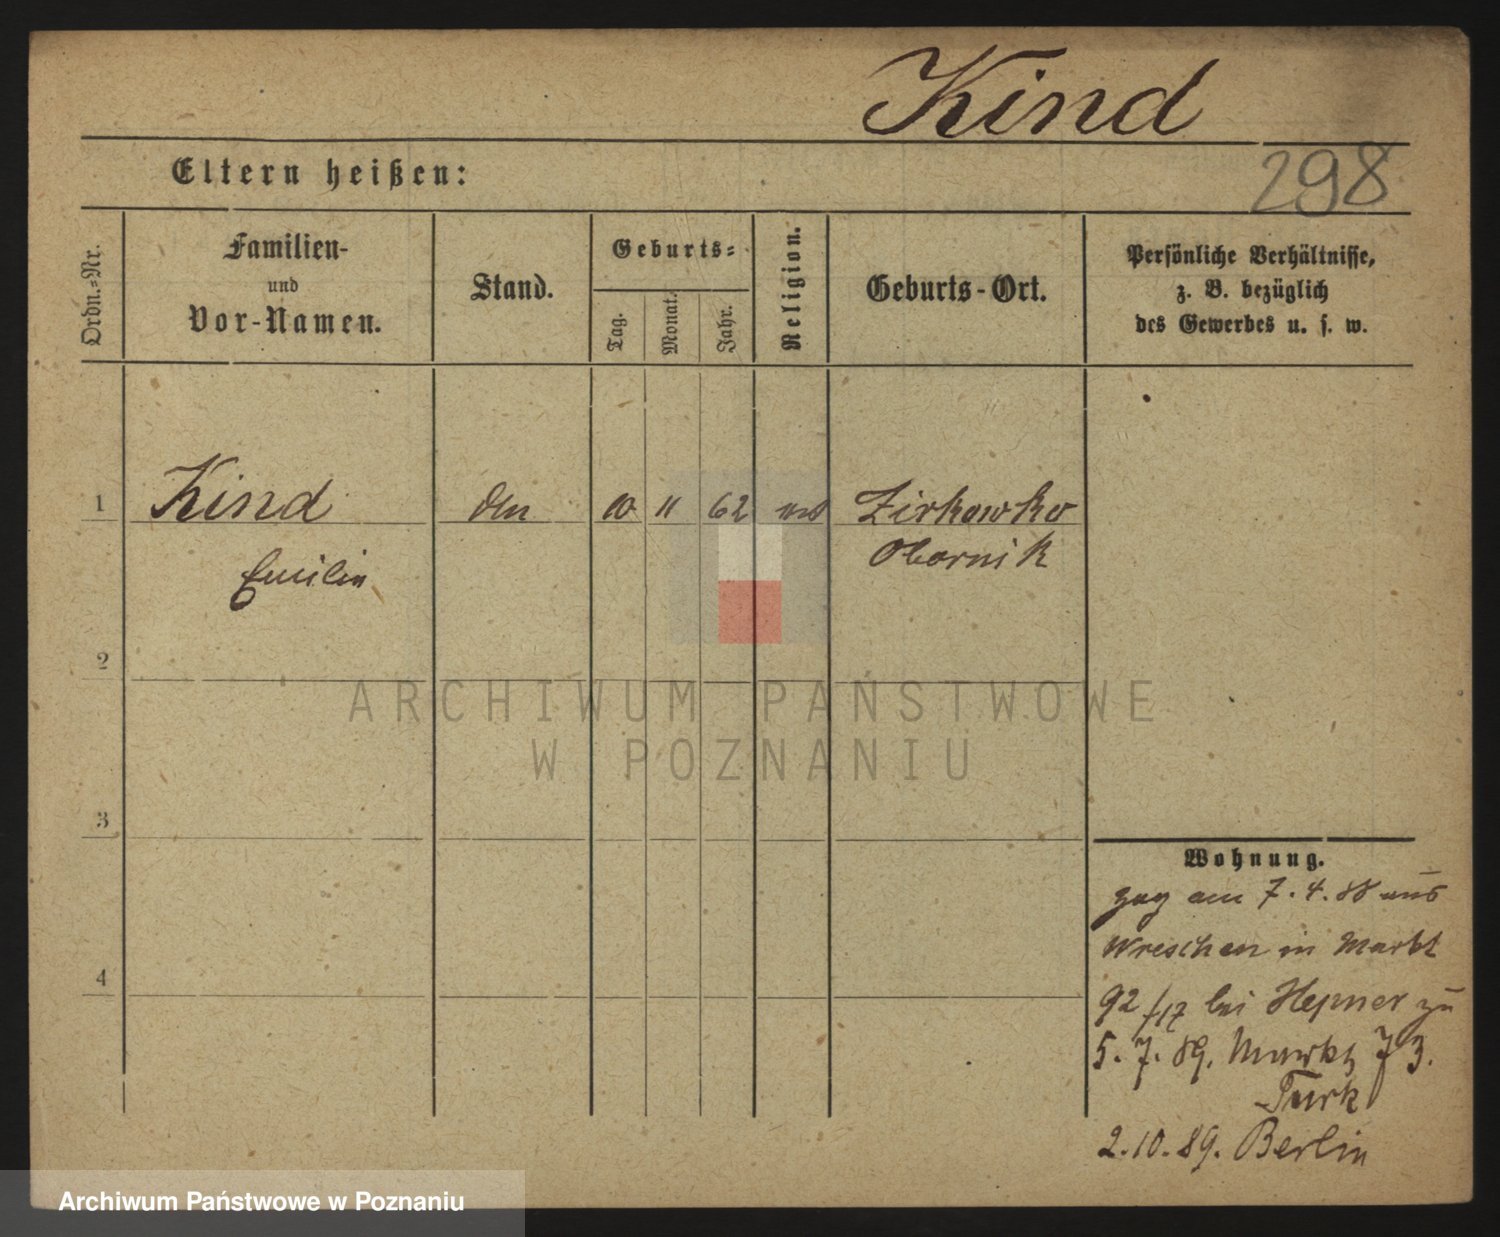 Kind
298
Eltern heißen:
Ordn.-Nr.
Familien-
und
Vor-Namen.
Stand.
Geburts-
Tag.
Monat.
Jahr.
Religion.
Geburts-Ort.
Persönliche Verhältnisse,
z. B. bezüglich
des Gewerbes u. s. w.
1 Kind 10 11 62 Zirkowko
Emilie Obornik
2
3
4
Wohnung.
zog am 7.4.88 aus
Wreschen in Markt
92/17 bei Hepner zu
5.7.89. Markt 73.
Turk
2.10.89. Berlin
ARCHIWUM PAŃSTWOWE
W POZNANIU
Archiwum Państwowe w Poznaniu